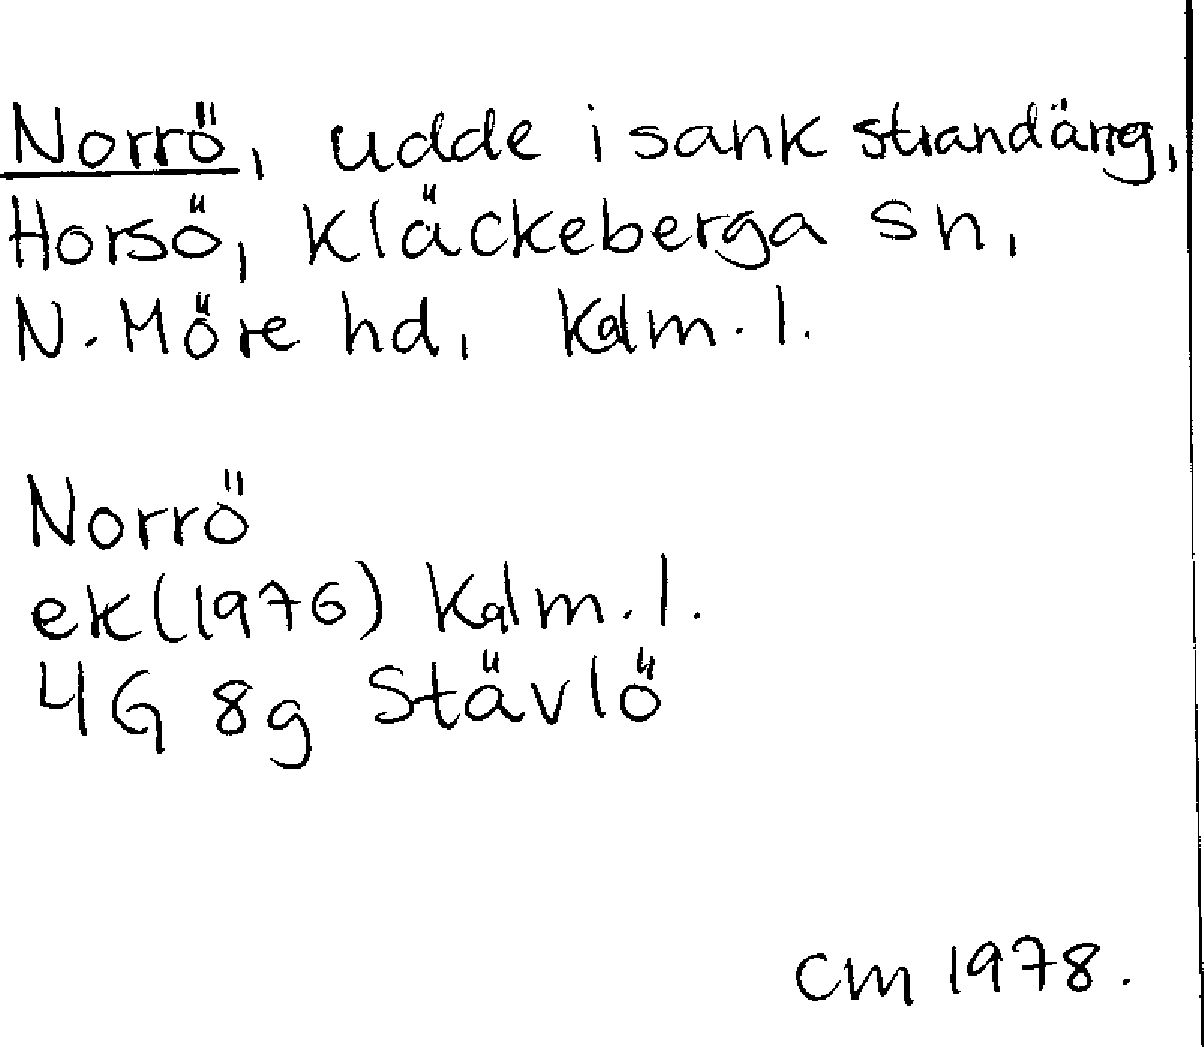 Norrö, udde i sank strandäng,
Horsö, Kläckeberga sn,
N. Möre hd, Kalm. l.
Norrö
ek (1976) Kalm. l.
4G 8g Stävlö
CM 1978.